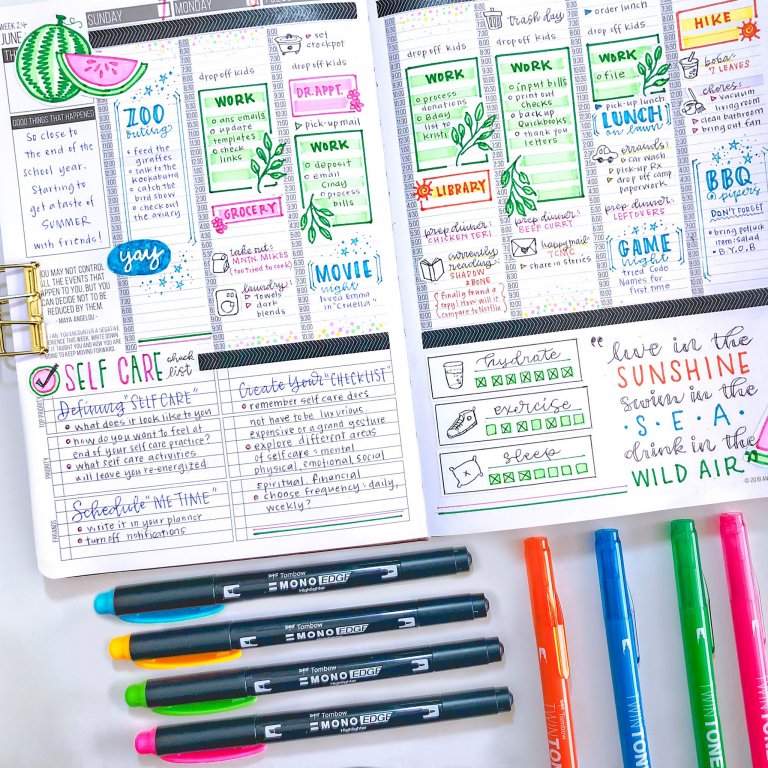 WEEK 24
JUNE
SUNDAY
MONDAY
GOOD THINGS THAT HAPPENED
So close to
the end of the
school year.
Starting to
get a taste of
SUMMER
with friends!
YOU MAY NOT CONTROL
ALL THE EVENTS THAT
HAPPEN TO YOU, BUT YOU
CAN DECIDE NOT TO BE
REDUCED BY THEM.
- MAYA ANGELOU -
ZOO
outing!
feed the
giraffes
talk to the
kookaburra
catch the
bird show
check out
the aviary
yay
drop off kids
WORK
ans emails
update
templates
check
links
GROCERY
take out:
MNTN MIKES
too tired to cook!
laundry:
towels
dark
blends
set
crockpot
drop off kids
DR. APPT.
pick-up mail
WORK
deposit
email
Cindy
process
bills
MOVIE
night
loved Emma
in "Cruella"
drop off kids
WORK
process
donations
Bday
list to
Kristi
LIBRARY
prep dinner:
CHICKEN TERI
currently
reading
SHADOW
& BONE
Finally found a
copy! How will it
compare to Netflix?
trash day
drop off kids
WORK
input bills
print out
checks
backup
Quickbooks
thank you
letters
prep dinner:
BEEF CURRY
happy mail:
TCMC
share in stories
order lunch
drop off kids
WORK
file
pick-up lunch
LUNCH
on lawn
errands:
car wash
pick-up Rx
drop off camp
paperwork
prep dinner:
LEFTOVERS
GAME
night
tried Code
Names for
first time
HIKE
boba:
7 LEAVES
chores:
vacuum
living room
clean bathroom
bring out fan
BBQ
pipers
DON'T FORGET
bring potluck
item: salad
B.Y.O.B
SELF CARE check
list
TOP PRIORITY
PRIORITY
ERRANDS
Defining "SELF CARE"
what does it look like to you
how do you want to feel at
end of your self care practice?
what self care activities
will leave you re-energized
Schedule "ME TIME"
write it in your planner
turn off notifications
Create Your "CHECKLIST"
remember self care does
not have to be luxurious,
expensive or a grand gesture
explore different areas
of self care: mental
physical, emotional, social
spiritual, financial
choose frequency: daily,
weekly?
hydrate
exercise
sleep
"live in the
SUNSHINE
swim in the
·S·E·A·
drink in the
WILD AIR"
Tombow
MONO EDGE
Highlighter
Tombow
MONO EDGE
Highlighter
Tombow
MONO EDGE
Highlighter
Tombow
MONO EDGE
Highlighter
Tombow
TWINTONE
TWINTONE
TWINTONE
TWINTONE